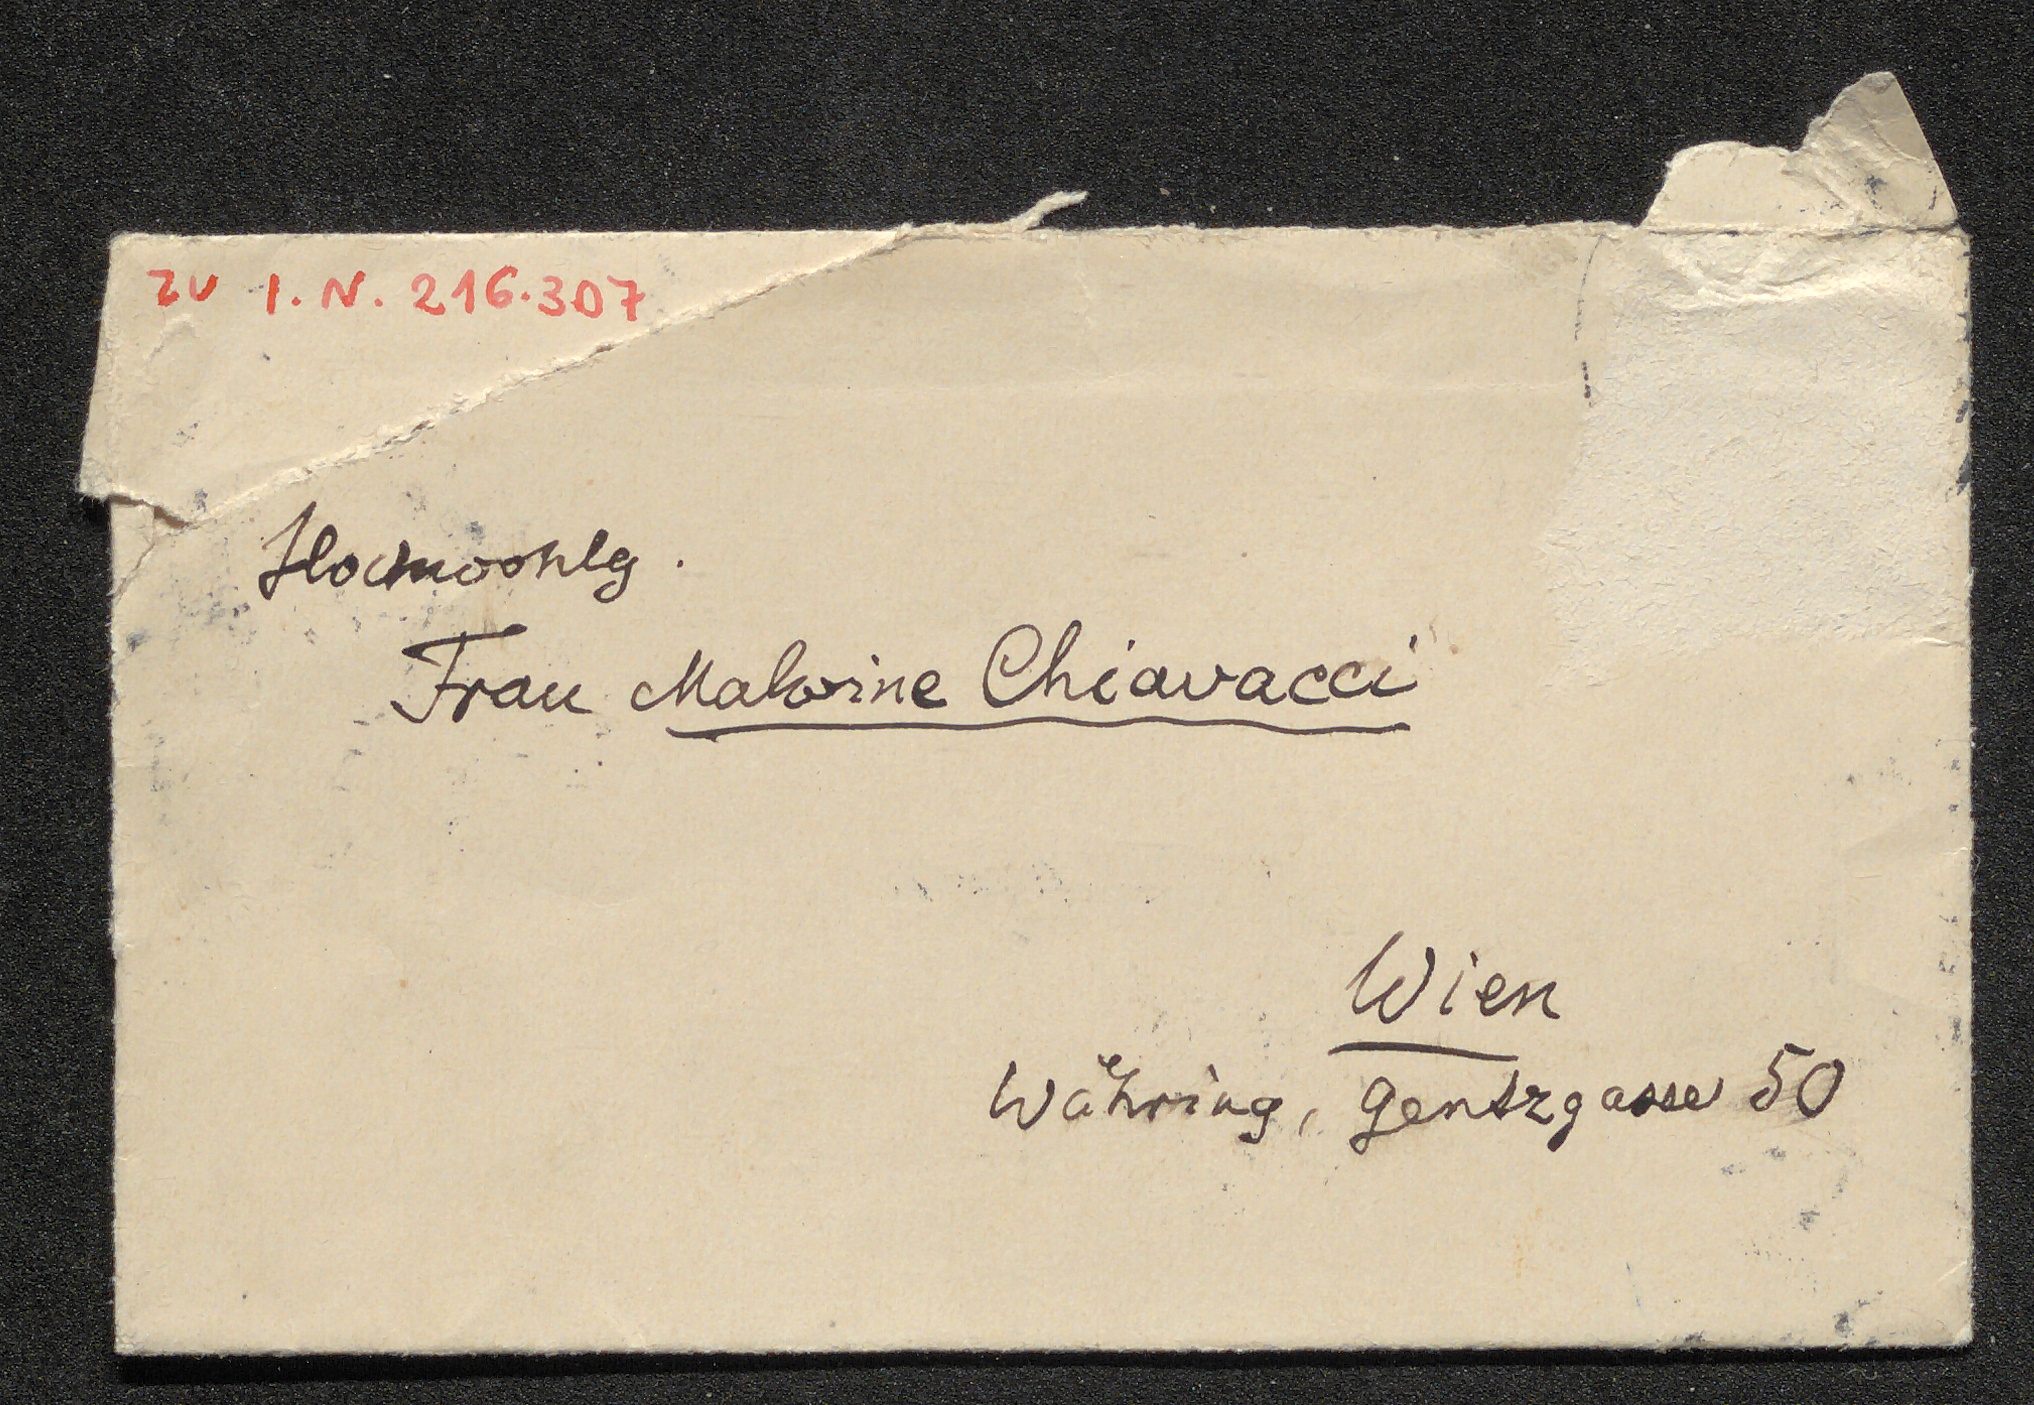 zu I.N. 216.307
Hochwohlg.
Frau Malvine Chiavacci
Wien
Währing, Gentzgasse 50